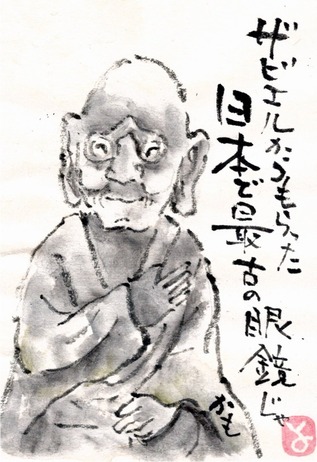 ザビエルからもらった
日本で最古の眼鏡じゃ
かも